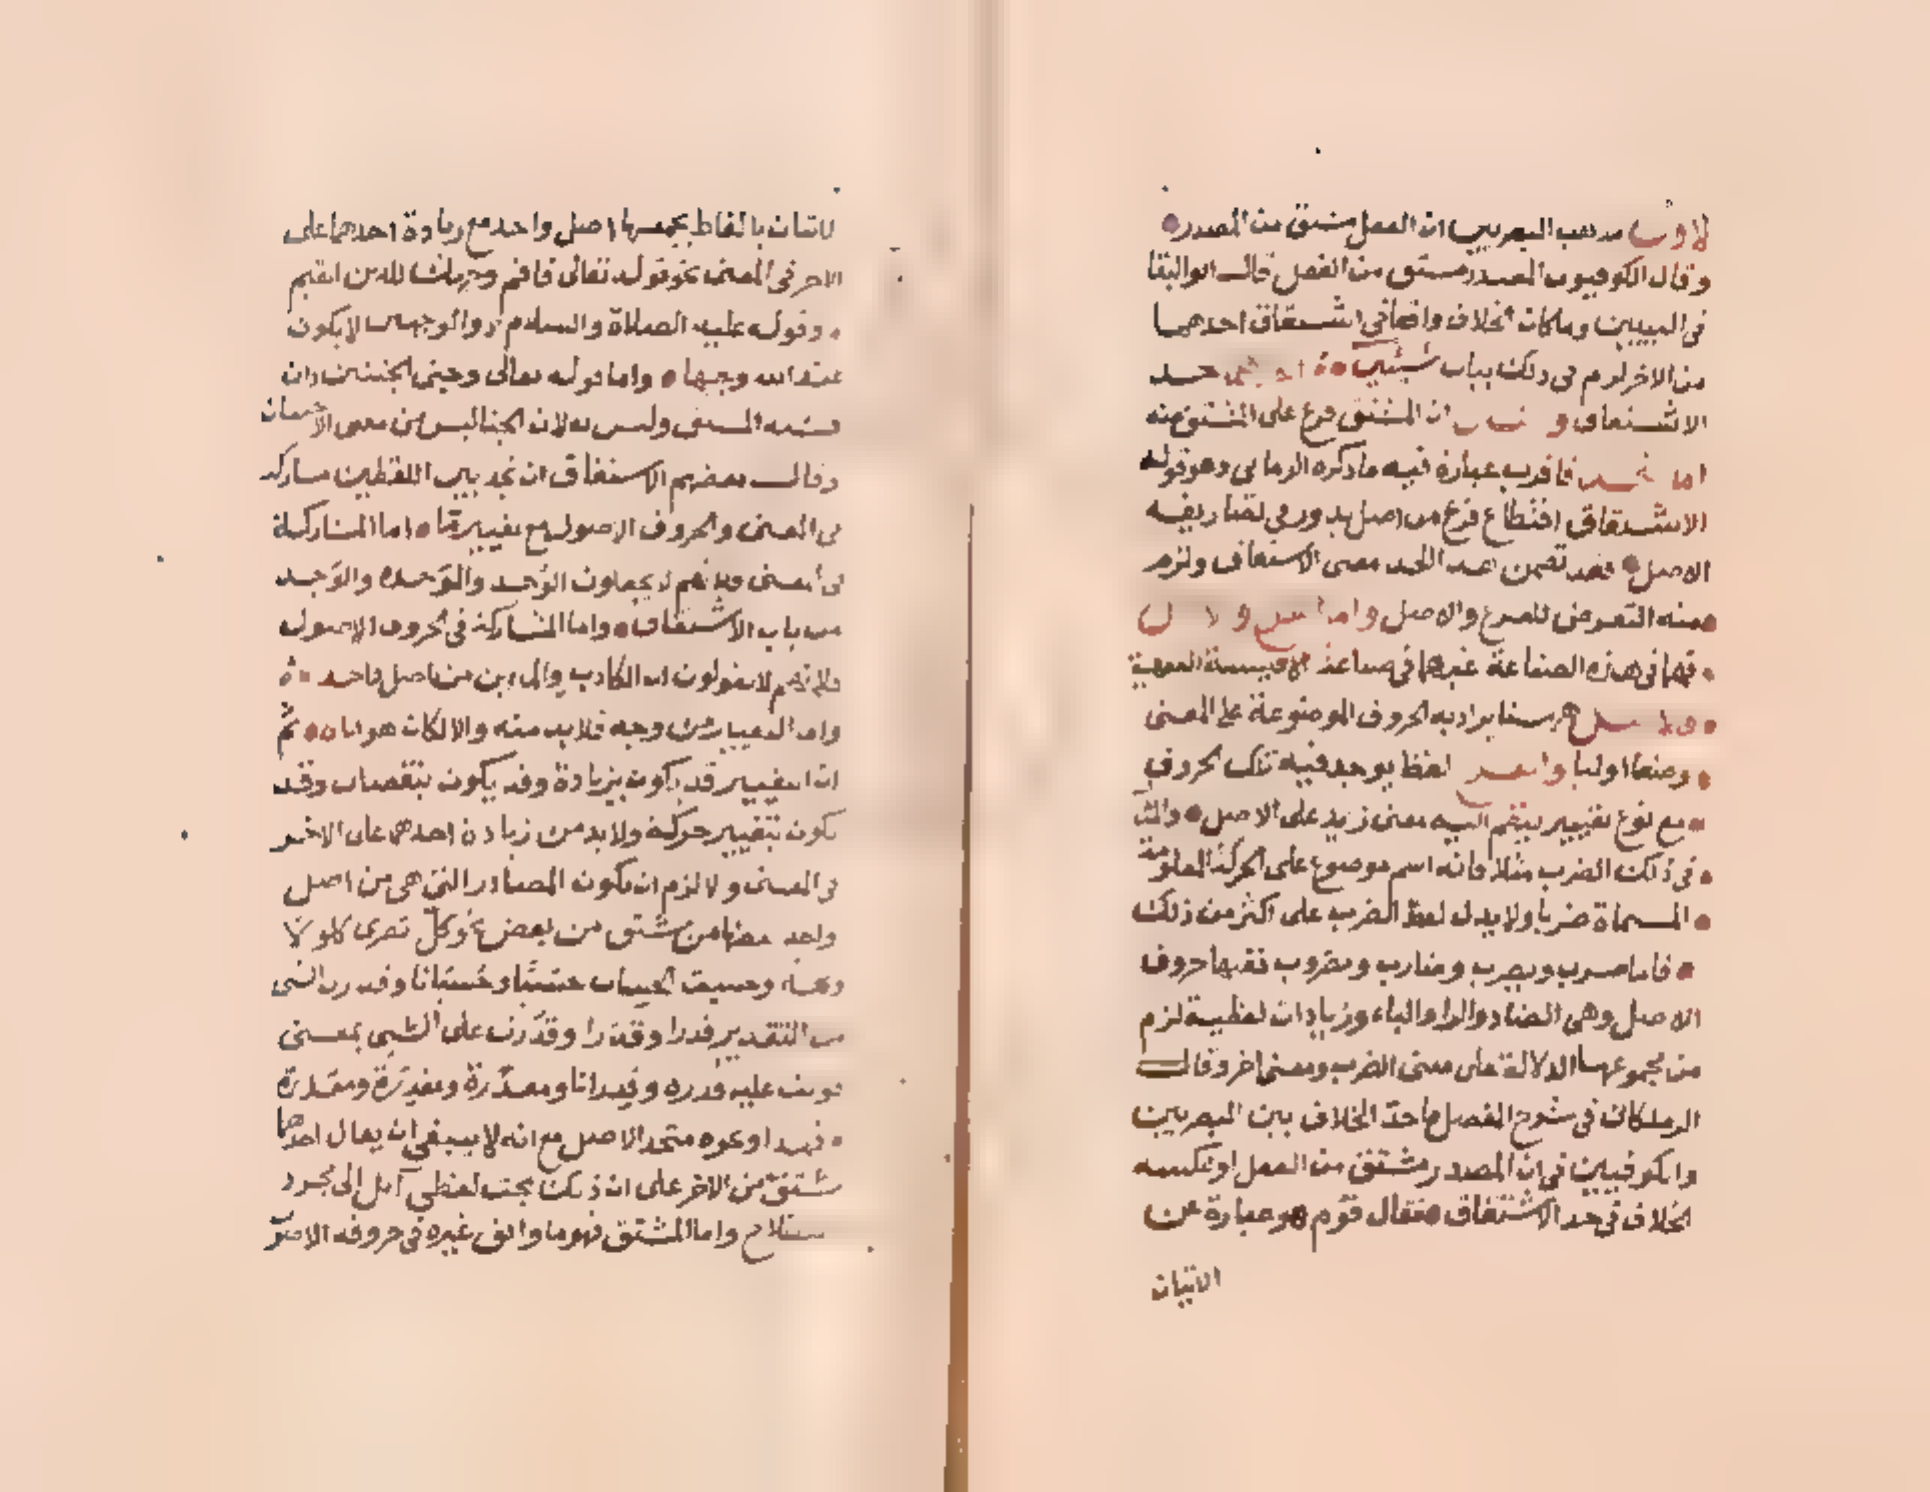 الاول مذهب البصريين ان الفعل مشتق من المصدر
وقال الكوفيون المصدر مشتق من الفعل قال ابو البقا
في التبيين ولما كان الخلاف واقعا في اشتقاق احدهما
من الاخر لزم في ذلك بيان شيئين احدهما حد
الاشتقاق و ان المشتق فرع على المشتق منه
اما الحد فاقرب عبارة فيه ما ذكره الرماني وهو قوله
الاشتقاق اقتطاع فرع من اصل يدور في تصاريفه
الاصل فقد تضمن هذا الحد معنى الاشتقاق ولزم
منه التعرض للفرع والاصل واما الفرع والاصل
فهما في هذه الصناعة غيرهما في صناعة الاقيسة الفقهية
والاصل هاهنا يراد به الحروف الموضوعة على المعنى
وضعا اوليا والفرع لفظ يوجد فيه تلك الحروف
مع نوع تغيير ينضم اليه معنى زيد على الاصل والمثال
في ذلك الضرب مثلا فانه اسم موضوع على الحركة المعلومة
المسماة ضربا ولا يدل لفظ الضرب على اكثر من ذلك
فاما ضرب ويضرب وضارب ومضروب ففيها حروف
الاصل وهي الضاد والرا والباء وزيادات لفظية لزم
من مجموعها الدلالة على معنى الضرب ومعنى اخر وقال
الزملكاني في شرح المفصل ماخذ الخلاف بين البصريين
والكوفيين في ان المصدر مشتق من الفعل او عكسه
الخلاف في حد الاشتقاق فقال قوم هو عبارة عن
الاتيان
الاتيان بالفاظ يجمعها اصل واحد مع زيادة احدهما على
الاخر في المعنى نحو قوله تعالى فاقم وجهك للدين القيم
وقوله عليه الصلاة والسلام ذو الوجهين لا يكون
عند الله وجيها واما قوله تعالى وجنى الجنتين دان
فشبه المشتق وليس به لان الجنا ليس من معنى الاجتنان
وقال بعضهم الاشتقاق ان تجد بين اللفظين مشاركة
في المعنى والحروف الاصول مع تغيير ما اما المشاركة
في المعنى فلانهم لا يجعلون الوجد والموجدة والوجد
من باب الاشتقاق واما المشاركة في الحروف الاصول
فلانهم لا يقولون ان الكاذب والمائن من اصل واحد
واما التغيير من وجه فلا بد منه والا لكان هو اياه ثم
ان التغيير قد يكون بزيادة وقد يكون بنقصان وقد
يكون بتغيير حركة ولا بد من زيادة احدهما على الاخر
في المعنى ولا لزم ان تكون المصادر التي هي من اصل
واحد بعضها مشتق من بعض نحو كل بصري كلولا
وكلة وحسبت الحساب حسبا وحسبانا وقدرت الشي
من التقدير قدرا وقدرا وقدرت على الشي بمعنى
قويت عليه قدرة وقدرانا ومقدرة ومقدرة ومقدرة
فهذا ونحوه متحد الاصل مع انه لا ينبغي ان يقال احدهما
مشتق من الاخر على ان ذلك بحث لفظي آيل الى مجرد
اصطلاح واما المشتق فهو ما وافق غيره في حروفه الاصول